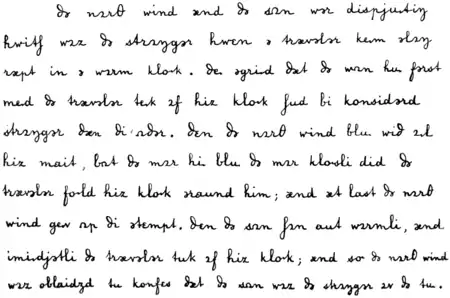 ðə nɔrθ wind ænd ðə sʌn wər dispjutiŋ
hwitʃ wɔz ðə strɔŋgər hwen ə trævələr kem əlɔŋ
ræpt in ə wɔrm klok. ðe əgrid ðæt ðə wʌn hu fərst
med ðə trævələr tek ɔf hiz klok ʃud bi konsidərd
strɔŋgər ðæn ði ʌðər. ðen ðə nɔrθ wind blu wið ɔl
hiz mait, bʌt ðə mɔr hi blu ðə mɔr klosli did ðə
trævələr fold hiz klok əraund him; ænd æt last ðə nɔrθ
wind gev ʌp ði ətempt. ðen ðə sʌn ʃɔn aut wɔrmli, ænd
imidjətli ðə trævələr tuk ɔf hiz klok; ænd so ðə nɔrθ wind
wɔz oblaidʒd tu konfes ðæt ðə sʌn wɔz ðə strɔŋgər ɔv ðə tu.